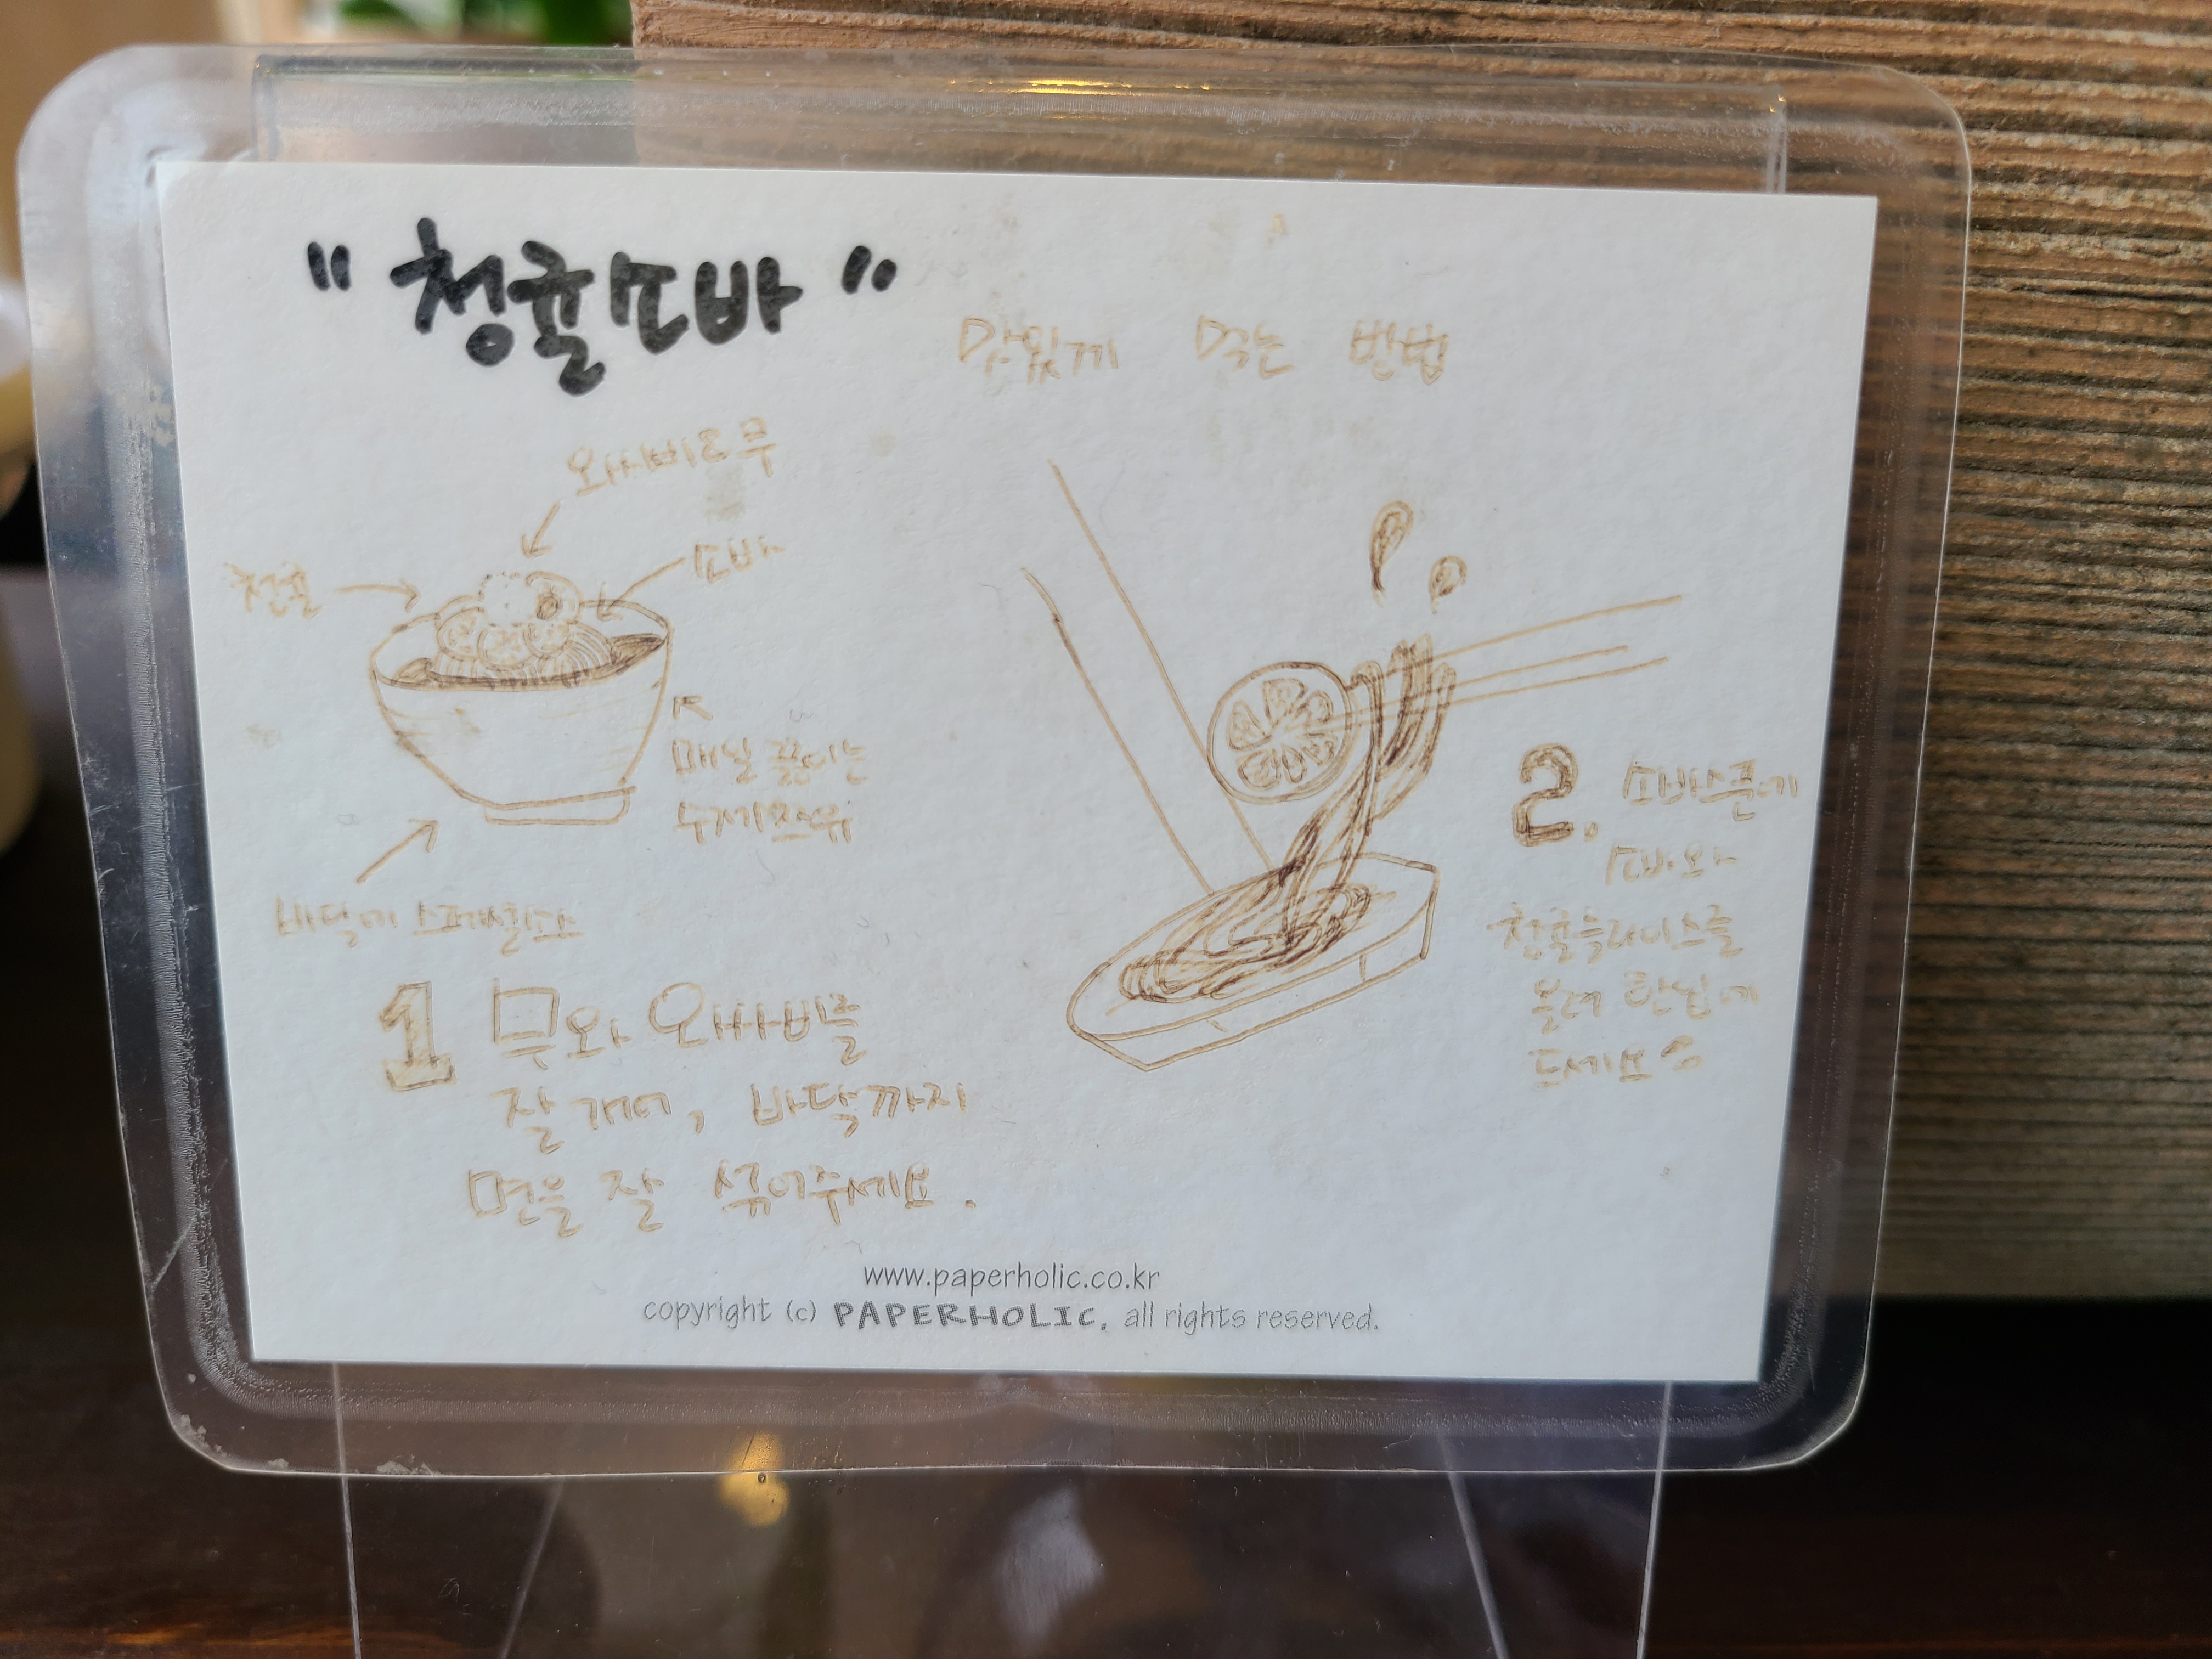 "청귤소바"
맛있게 먹는 방법
와사비&무
청귤
소바
매일 끓이는
수제쯔유
바닥에 스페셜소스
1 무와 와싸비를
잘 개어, 바닥까지
면을 잘 섞어주세요.
2. 소바스푼에
소바와
청귤슬라이스를
올려 한입에
드세요
www.paperholic.co.kr
copyright (c) PAPERHOLIC, all rights reserved.